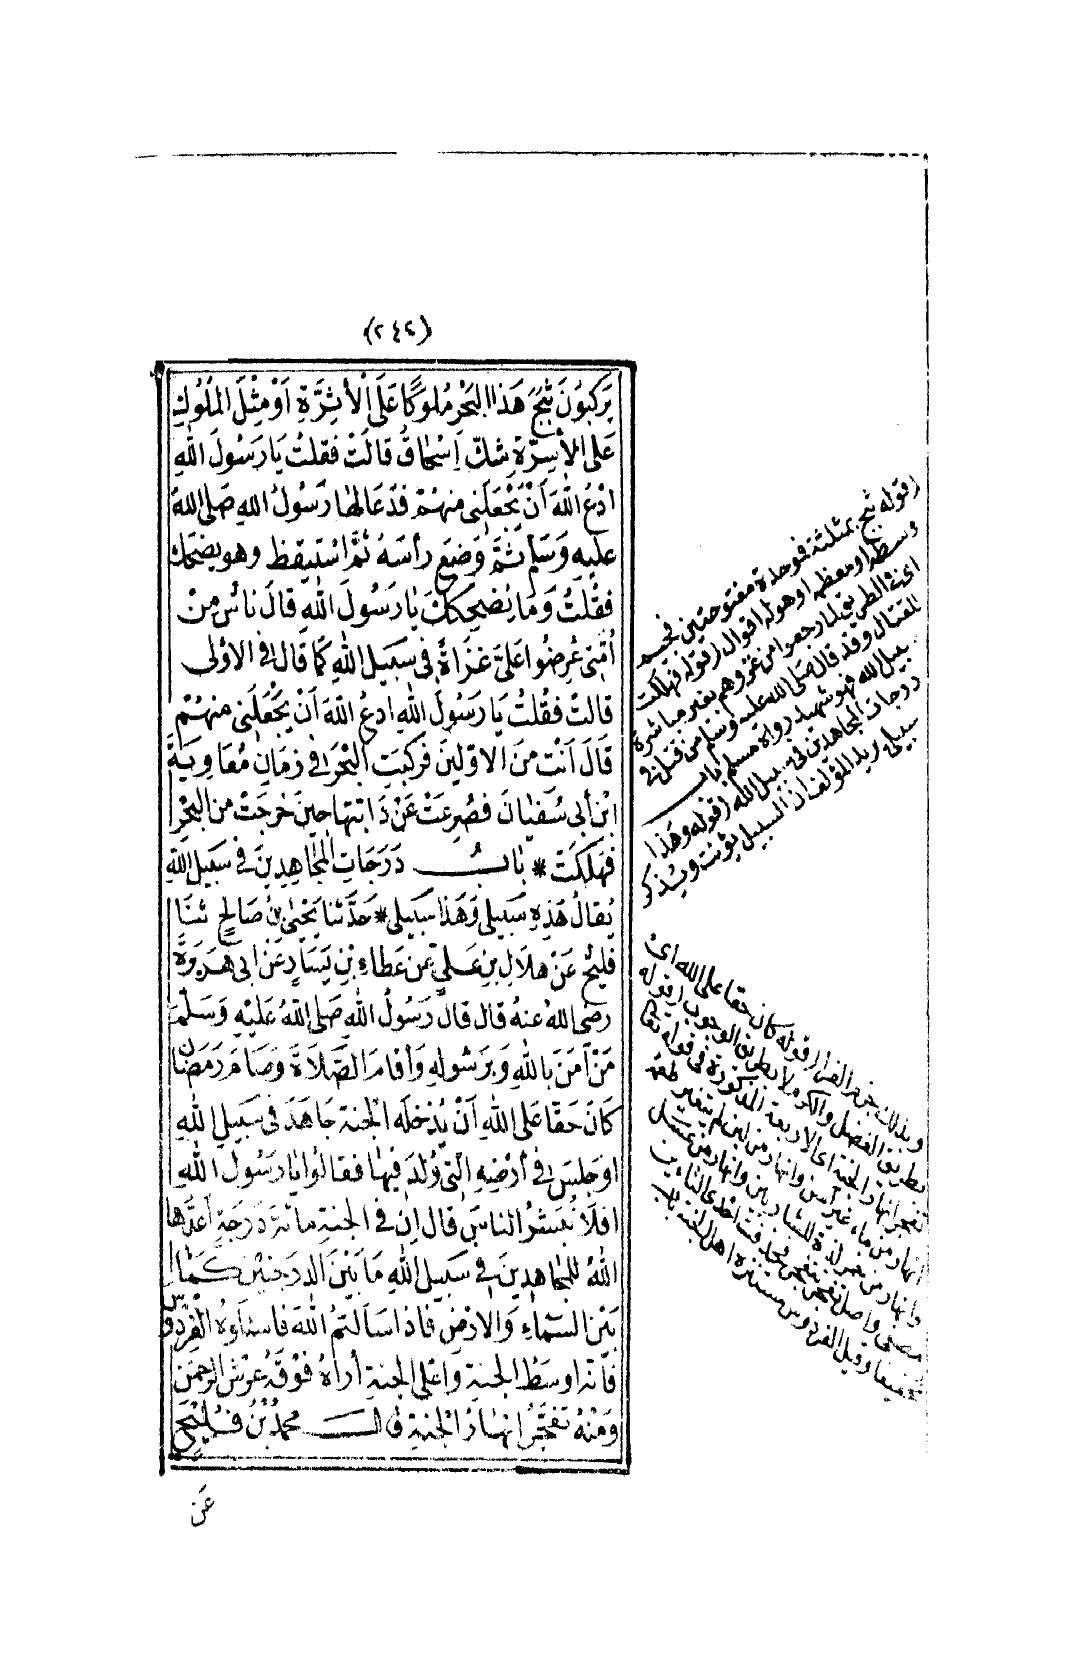 (٢٤٢)
يَرْكَبُونَ ثَبَجَ هَذَا الْبَحْرِ مُلُوكًا عَلَى الْأَسِرَّةِ أَوْ مِثْلَ الْمُلُوكِ
عَلَى الأَسِرَّةِ شَكَّ إِسْحَاقُ قَالَتْ فَقُلْتُ يَا رَسُولَ اللهِ
ادْعُ اللهَ أَنْ يَجْعَلَنِى مِنْهُمْ فَدَعَا لَهَا رَسُولُ اللهِ صَلَّى اللهُ
عَلَيْهِ وَسَلَّمَ ثُمَّ وَضَعَ رَأْسَهُ ثُمَّ اسْتَيْقَظَ وهو يضحك
فَقُلْتُ وَمَا يُضْحِكُكَ يَا رَسُولَ اللهِ قَالَ نَاسٌ مِنْ
أُمَّتِى عُرِضُوا عَلَىَّ غَزَاةً فى سَبِيلِ اللهِ كَمَا قَالَ فى الأولى
قَالَتْ فَقُلْتُ يَا رَسُولَ اللهِ ادعُ اللهَ أَنْ يَجْعَلَنِى مِنْهُمْ
قَالَ أَنْتِ مِنَ الاوَّلِينَ فَرَكِبَتِ الْبَحْرَ فى زمَانِ مُعَاوِيَةَ
ابْنِ أَبى سُفْيَانَ فَصُرِعَتْ عَنْ دَابَّتِهَا حِينَ خرجَتْ من الْبَحْرِ
فَهَلَكَتْ * بَابُ دَرَجَاتِ الْمُجَاهِدِينَ فى سَبِيلِ اللهِ
يُقَالُ هَذِهِ سَبِيلِى وَهَذَا سَبِيلِى * حَدَّثَنَا يَحْيَى بْنُ صَالِحٍ ثنَا
فُلَيْحٌ عَنْ هِلَالِ بْنِ عَلِىٍّ عَنْ عَطَاءِ بْنِ يَسَارٍ عَنْ ابى هُرَيْرَةَ
رضى الله عنهُ قال قالَ رَسُولُ اللهِ صَلَّى اللهُ عَلَيْهِ وَسَلَّمَ
مَنْ آمَنَ بِاللهِ وَبِرَسُولِهِ وَأَقَامَ الصَّلَاةَ وَصَامَ رَمَضَانَ
كَانَ حَقًّا عَلَى اللهِ أَنْ يُدْخِلَهُ الْجَنَّةَ جَاهَدَ فى سَبِيلِ اللهِ
اوجَلَسَ فى أَرْضِهِ الَّتِى وُلِدَ فِيهَا فقالُوا يَا رَسُولَ اللهِ
افَلَا نُبَشِّرُ النَّاسَ قال إن فى الجنةِ مائةَ دَرَجَةٍ أَعَدَّهَا
اللهُ لِلْمُجَاهِدِينَ فى سَبِيلِ اللهِ مَا بَيْنَ الدرجتين كَمَا
بَيْنَ السَّمَاءِ وَالارْضِ فاذا سألتُم اللهَ فاسألوهُ الْفِرْدَوْسَ
فَانَّهُ اوسَطُ الجنةِ واعْلَى الجنةِ أراهُ فوْقَهُ عَرْشُ الرحمنِ
وَمِنْهُ تَفَجَّرُ انهارُ الْجَنَّةِ قَالَ مُحَمَّدُ بْنُ فُلَيْحٍ
عَنْ
(قوله ثبج بمثلثة فموحدة مفتوحتين فجيم
وسطه او معظمه او هوله اقوال (قوله فهلكت
اى فى الطريق لما رجعوا من غزوهم بغير مباشرة
للقتال وقد قال صلى الله عليه وسلم من قتل فى
سبيل الله فهو شهيد رواه مسلم باب
درجات المجاهدين فى سبيل الله (قوله وهذا
سبيلى يريد المؤلف ان السبيل يؤنث ويذكر
وبذلك جزم الفراء (قوله كان حقا على الله اى
بطريق الفضل والكرم لا بطريق الوجوب (قوله
تفجر انهار الجنة اى الاربعة المذكورة فى قوله تعالى
انهار من ماء غير آسن وانهار من لبن لم يتغير طعمه
وانهار من خمر لذة للشاربين وانهار من عسل
مصفى واصل تفجر تتفجر فحذفت احدى التاءين
تخفيفا وقيل الفردوس مستنزه اهل الجنة